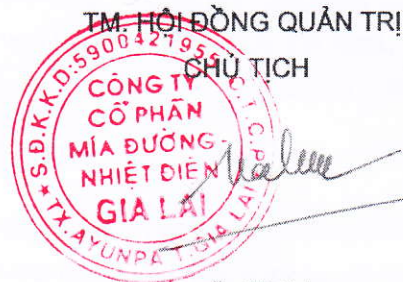 TM. HỘI ĐỒNG QUẢN TRỊ
CHỦ TỊCH
S.Đ.K.K.D:5900421955 C.T.C.P
CÔNG TY
CỔ PHẦN
MÍA ĐƯỜNG -
NHIỆT ĐIỆN
GIA LAI
TX.AYUNPA T.GIA LAI